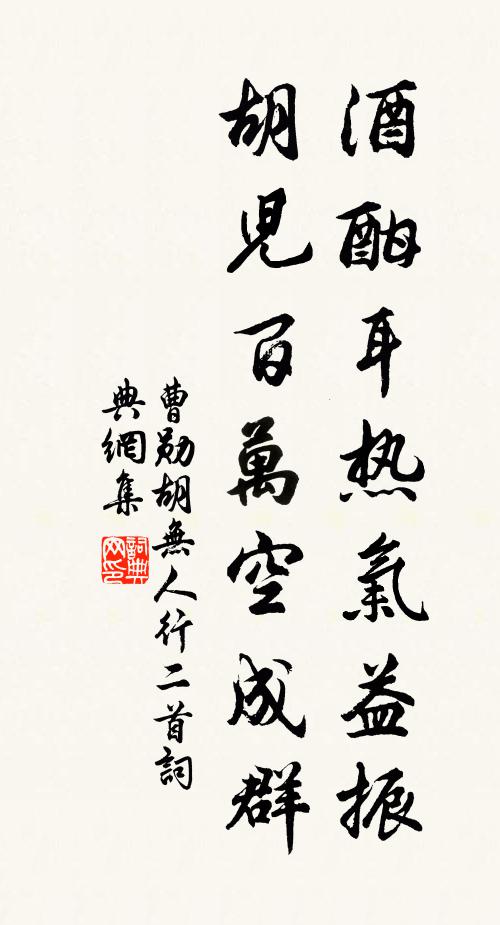 酒酣耳热氣益振
胡児百萬空成群
曹勛胡無人行二首詞
典網集
詞典
网印